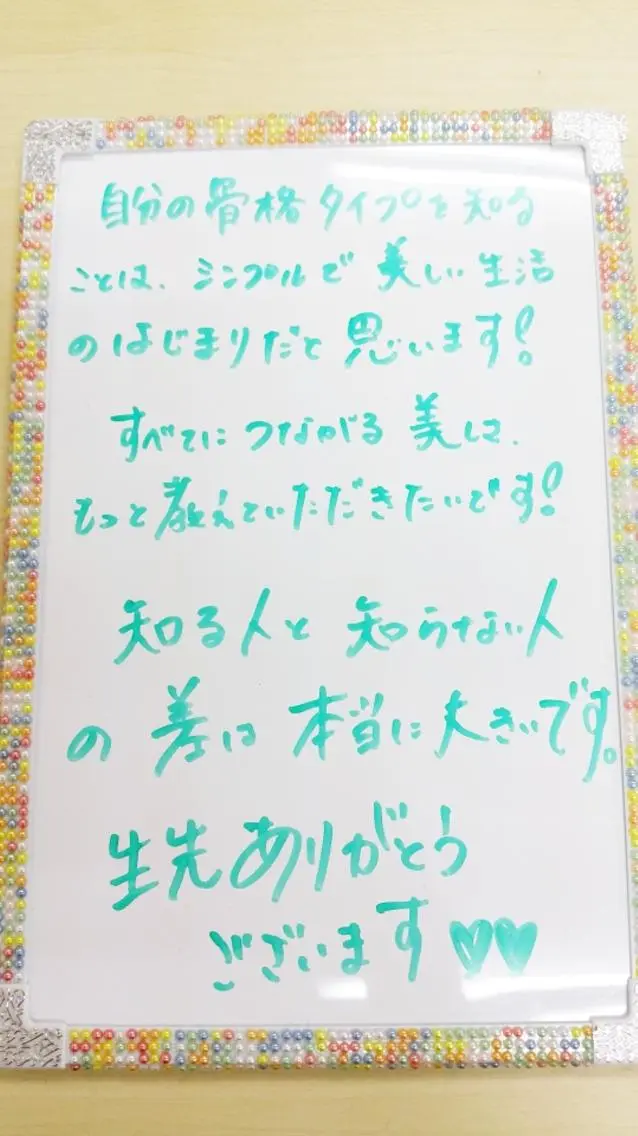 自分の骨格タイプを知る
ことは、シンプルで美しい生活
のはじまりだと思います!
すべてにつながる美しさ、
もっと教えていただきたいです!
知る人と知らない人
の差は本当に大きいです。
生先ありがとう
ございます♥♥